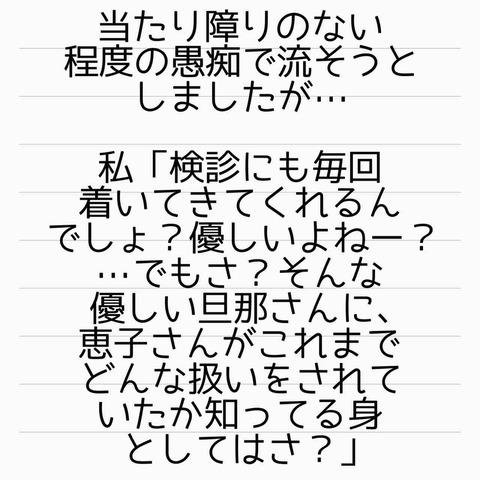 当たり障りのない
程度の愚痴で流そうと
しましたが…
私「検診にも毎回
着いてきてくれるん
でしょ？優しいよねー？
…でもさ？そんな
優しい旦那さんに、
恵子さんがこれまで
どんな扱いをされて
いたか知ってる身
としてはさ？」